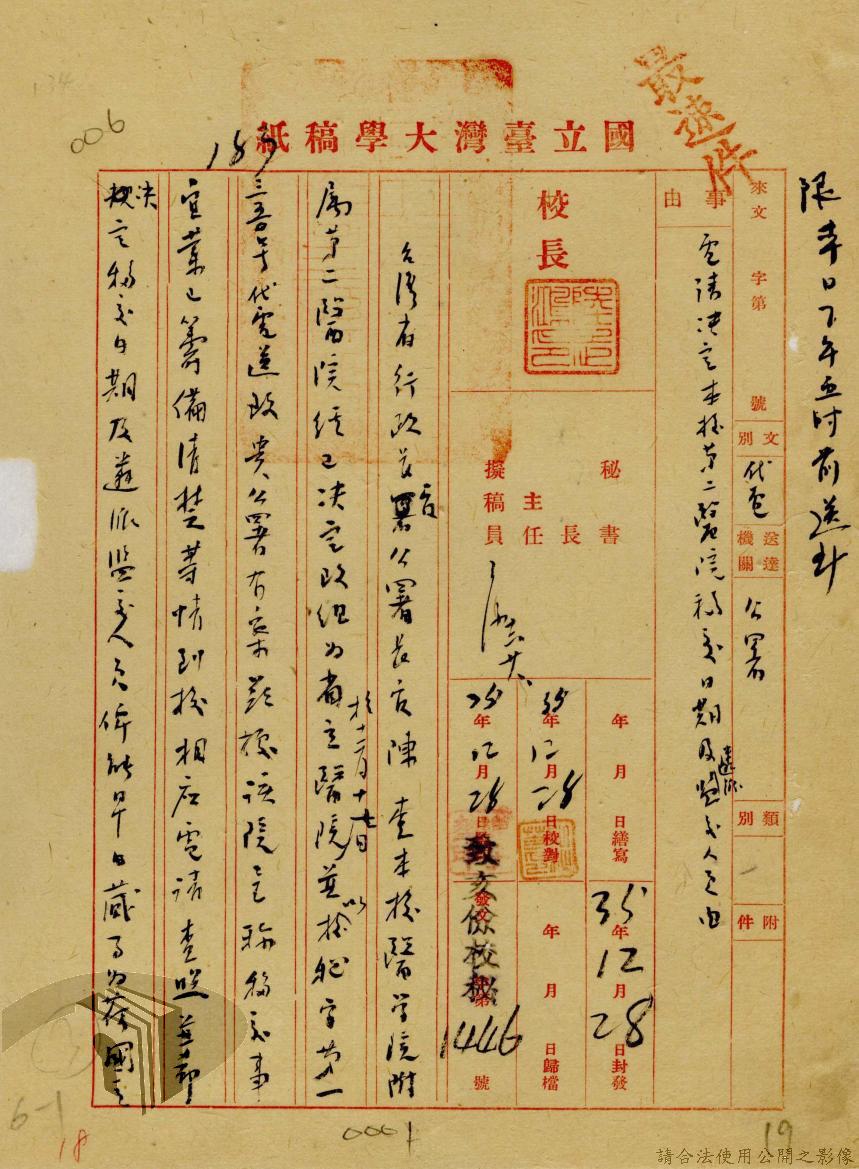 最速件
限本日下午五时前送斗
國立臺灣大學稿紙
006
183
來文 字第 號
事由
電請决定本校第二醫院移交日期及遴派監交人員由
文別 代電
送達機關 公署
類別
附件
校長
秘書長
主任
擬稿員
年 月 日繕寫
35年12月28日校對
35年12月28日
35年12月28日封發
年 月 日歸檔
發文
致亥儉校秘
第1446號
台灣省行政長官公署長官陳 查本校醫学院附
属第二醫院經已决定改組为省立醫院並於十二月十七日以校秘字第一
三五号代電送政貴公署有案茲據該院呈稱移交事
宜業已籌備清楚等情到校相应電請查照並希
决定移交日期及遴派监交人員俾能早日蕆事为荷國立
6-1
18
0001
19
請合法使用公開之影像